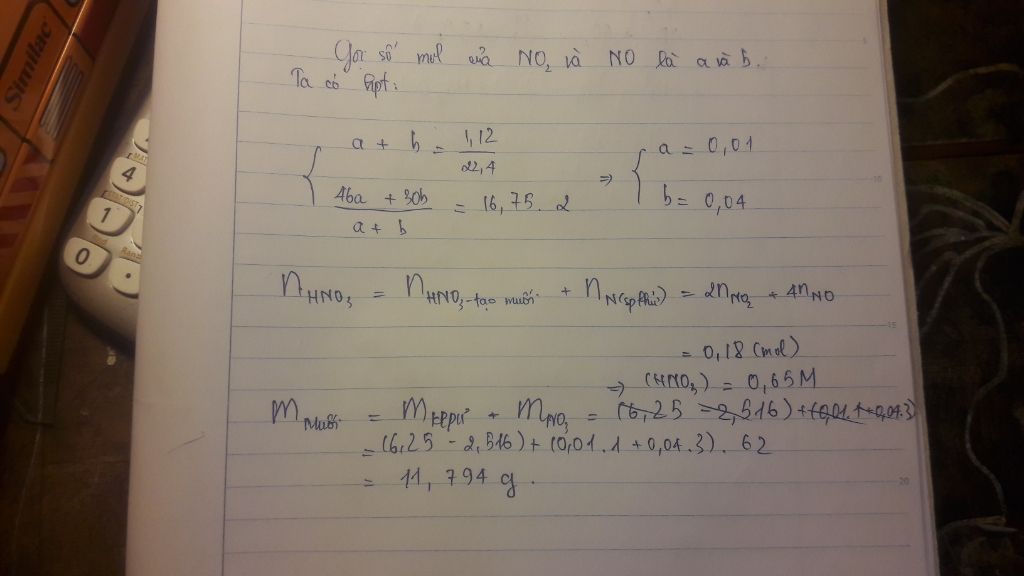 Similac
4
1
0
Gọi số mol của NO₂ và NO là a và b.
Ta có hpt:
{ a + b = 1,12 / 22,4 ⇒ { a = 0,01
(46a + 30b) / (a + b) = 16,75 . 2 b = 0,04
n HNO₃ = n HNO₃ tạo muối + n N(sp khử) = 2n NO₂ + 4n NO
= 0,18 (mol)
⇒ (HNO₃) = 0,65M
m muối = m KLpư + m NO₃ = (6,25 - 2,516) + (0,01.1 + 0,04.3)
= (6,25 - 2,516) + (0,01 . 1 + 0,04 . 3) . 62
= 11,794 g.